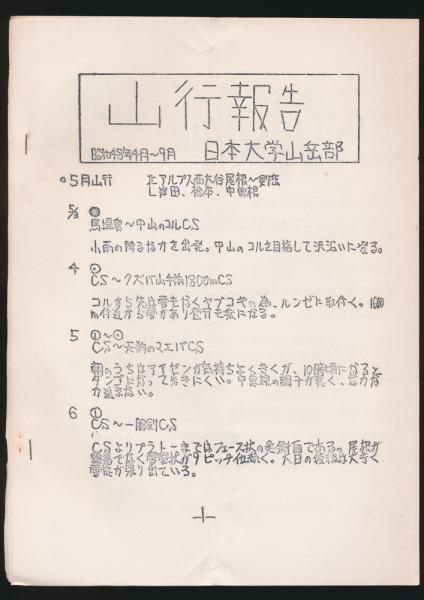 山行報告
昭和48年4月～9月 日本大学山岳部
○5月山行 北アルプス西大谷尾根～剱岳
L岸田、橋本、中曽根
5/3
馬場島～中山のコルCS
小雨の降るなかを出発。中山のコルを目指して沢沿いに登る。
4
CS～クズバ山手前1800mCS
コルから先は雪も無くヤブコギの為、ルンゼに取付く。1600
m付近から雪があり登りも楽になる。
5 ①～
CS～天狗のマエバCS
朝のうちはアイゼンが気持ちよくきくが、10時頃になると
ダンゴになって歩きにくい。中曽根の調子が悪く、
が進まない。
6 ①
CS～一服剱CS
CSよりプラトーまではフェース状の急斜面である。尾根が
雪壁状が9ピッチ位続く。
雪庇が張り出ている。
-1-